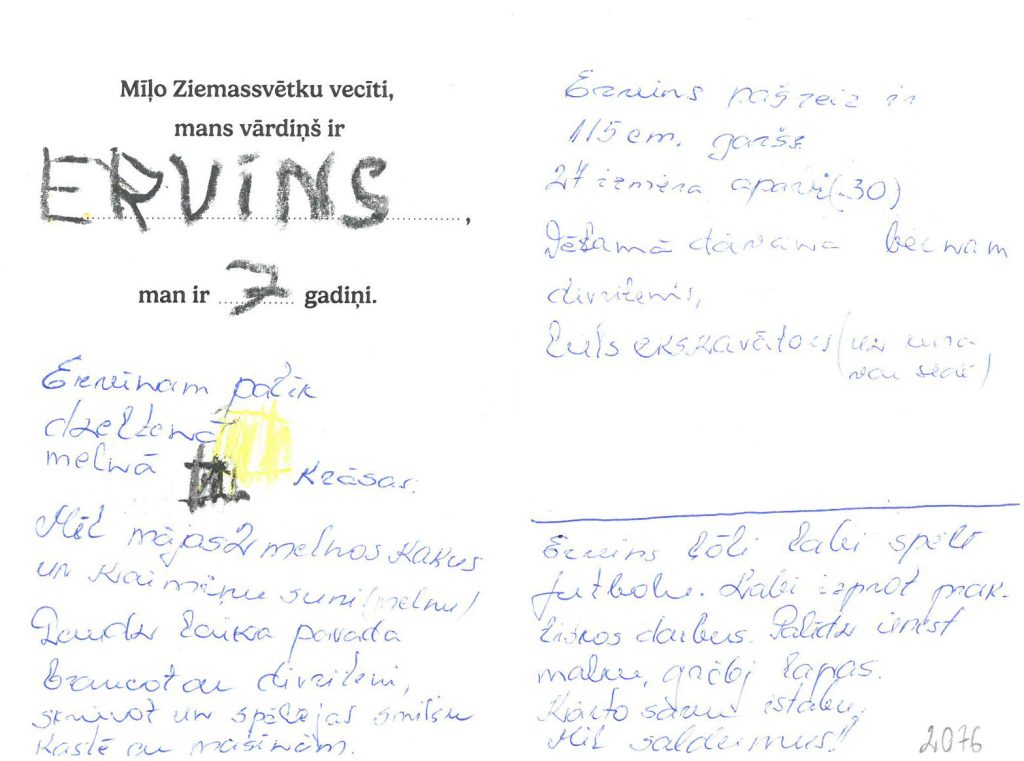 Mīļo Ziemassvētku vecīti,
mans vārdiņš ir
ERVINS,
man ir 7 gadiņi.
Ervinam patīk
dzeltenā
melnā krāsas.
Mīl mājas 2 melnos kaķus
un kaimiņu suni (melnu)
Daudz laika pavada
braucot ar divriteni,
skrienot un spēlējas smilšu
kastē ar mašīnām.
Ervins pašreiz ir
115 cm. garšs
27 izmēra apavi (-30)
Vēlamā dāvana bērnam
divritenis,
liels ekskavators (uz kura
var sēdēt)
Ervins ļoti labi spēlē
futbolu. Labi izprot prak-
tiskos darbus. Palīdz ienest
malku, grābj lapas.
Kārto savu istabu.
Mīl saldumus!!
2076